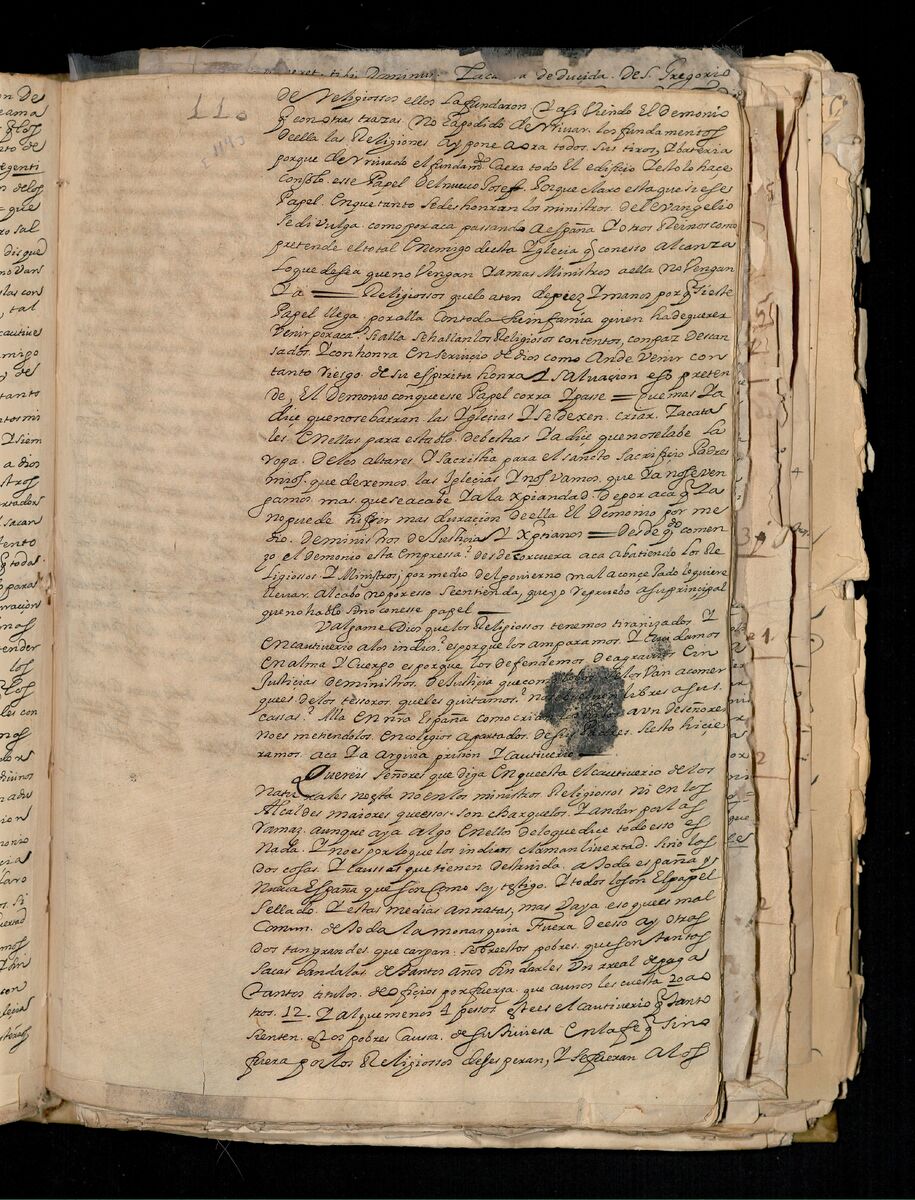 11.
de Religiossos ellos la fundaron. Y asi viendo El Demonio
q̃ con otras trazas. No a podido derrivar. los fundamentos
de ella las Religiones ay pone aora todos. sus tiros, y bateria
porque derrivado el fundamᵗᵒ. Caera todo El edificio y esto lo hace
con solo esse Papel Del nuevo Josef. Porque claro esta que si esse
Papel. En que tanto se deshonran los ministros. del evangelio
se divulga. como por aca passando a españa y otros Reinos como
pretende el total Enemigo de esta Yglesia q̃ con esso Alcanza
Lo que desea que no Vengan Jamas Ministros a ella no Vengan
Ya == Religiossos que lo aten de piez y manos por q̃ si este
Papel llega. por alla con toda su infamia quien ha de querer
Venir por aca? si alla se hallan los Religiosos contentos, con paz Descan
sados. y con honra En servicio de dios como Ande Venir con
tanto riesgo. de su espiritu honra y salvacion eso preten
de, El Demonio con que esse Papel corra y passe == que mas Ya
dice que no se barran. las Yglesias y se dexen. criar. Zacata
les En ellas para establo. de bestias Ya dice que no se labe la
ropa. De los altares y sacristia para el sancto sacrificio Padres
mios. que dexemos. las Yglesias y nos vamos. que Ya no se ven
gamos mas. que se acabe Ya la xpiandad de por aca q̃ Ya
no puede mas duracion de ella El Demonio por me
dio. De ministros de Justicia y xptianos == Desde q̃ comen
zo el demonio esta Empressa? desde aca abatiendo los Re
ligiossos y Ministros; por medio del govierno mal aconsejado le quiere
llevar. al cabo no por esso se entienda, que yo repruebo a su principal
que no hablo sino con esse papel ==
Valgame Dios que los Religiossos tenemos tiranizados y
En cautiverio a los indios? es porque los amparamos. y
En alma y Cuerpo es porque los defendemos. De agravios En
Justicias de ministros. De Justicia que los Van a comer
que es de los tessoros. que les quitamos? libres a sus
cassas? Alla En nrã España como a un de señores
no es metiendolos. En colegios apartados. de sus Padres. si esto hicie
ramos. aca Ya arguia prision y cautiverio
Quereis señores que diga En que esta el cautiverio de los
Naturales no esta no en los ministros Religiossos ni en los
Alcaldes maiores que essos son charquelos. y andar por las
ramaz. aunque aya algo En ellos de lo que dice todo esso es
Nada. y no es por lo que los indios claman livertad. sino los
dos cosas. y caussas que tienen destruida. a toda españa y
Nueva España que son como soy testigo. y todos lo son El papel
sellado. y estas medias annatas, mas Vaya eso que es mal
Comun. de toda la monarquia Fuera de esso ay otros
dos tan grandes. que cargan. sobre estos pobres. que son tantos
sacas bandalas de tantos años sin darles. Un rreal de paga
tantos titulos. de oficios por fuerza. que a unos les cuesta 20 a o
tros. 12. y al que menos 4 pesos. este es el cautiverio q̃ tanto
sienten. estos pobres Causa. de su tiviesa En la fe q̃ sino
fuera por los Religiossos desesperan, y se fueran a los